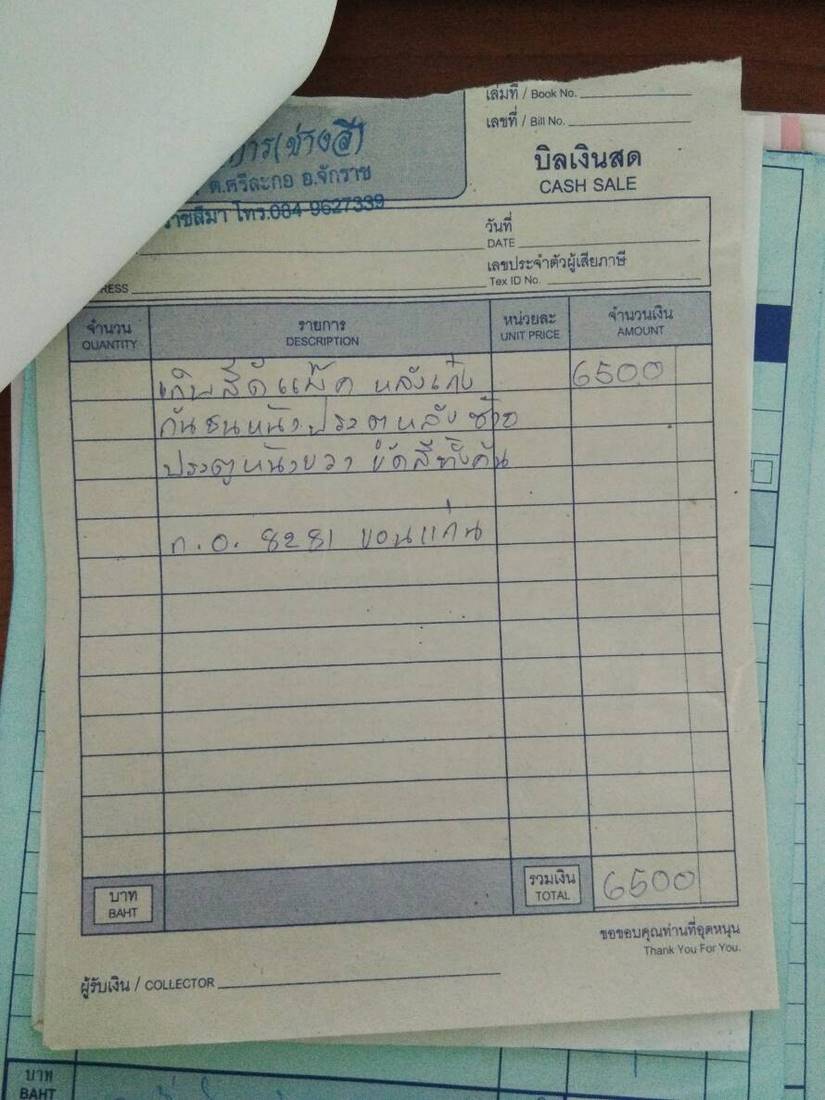 เล่มที่ / Book No.
เลขที่ / Bill No.
(ช่างสี)
ต.ศรีละกอ อ.จักราช
ราชสีมา โทร.084-9627339
บิลเงินสด
CASH SALE
วันที่
DATE
เลขประจำตัวผู้เสียภาษี
Tex ID No.
RESS
จำนวน รายการ หน่วยละ จำนวนเงิน
QUANTITY DESCRIPTION UNIT PRICE AMOUNT
หลังเก๋ง 6500
กันชนหน้า ประตูหลังซ้าย
ประตูหน้าขวา ขัดสีทั้งคัน
ก.อ. 8281 ขอนแก่น
บาท
BAHT
รวมเงิน 6500
TOTAL
ขอขอบคุณท่านที่อุดหนุน
Thank You For You.
ผู้รับเงิน / COLLECTOR
บาท
BAHT